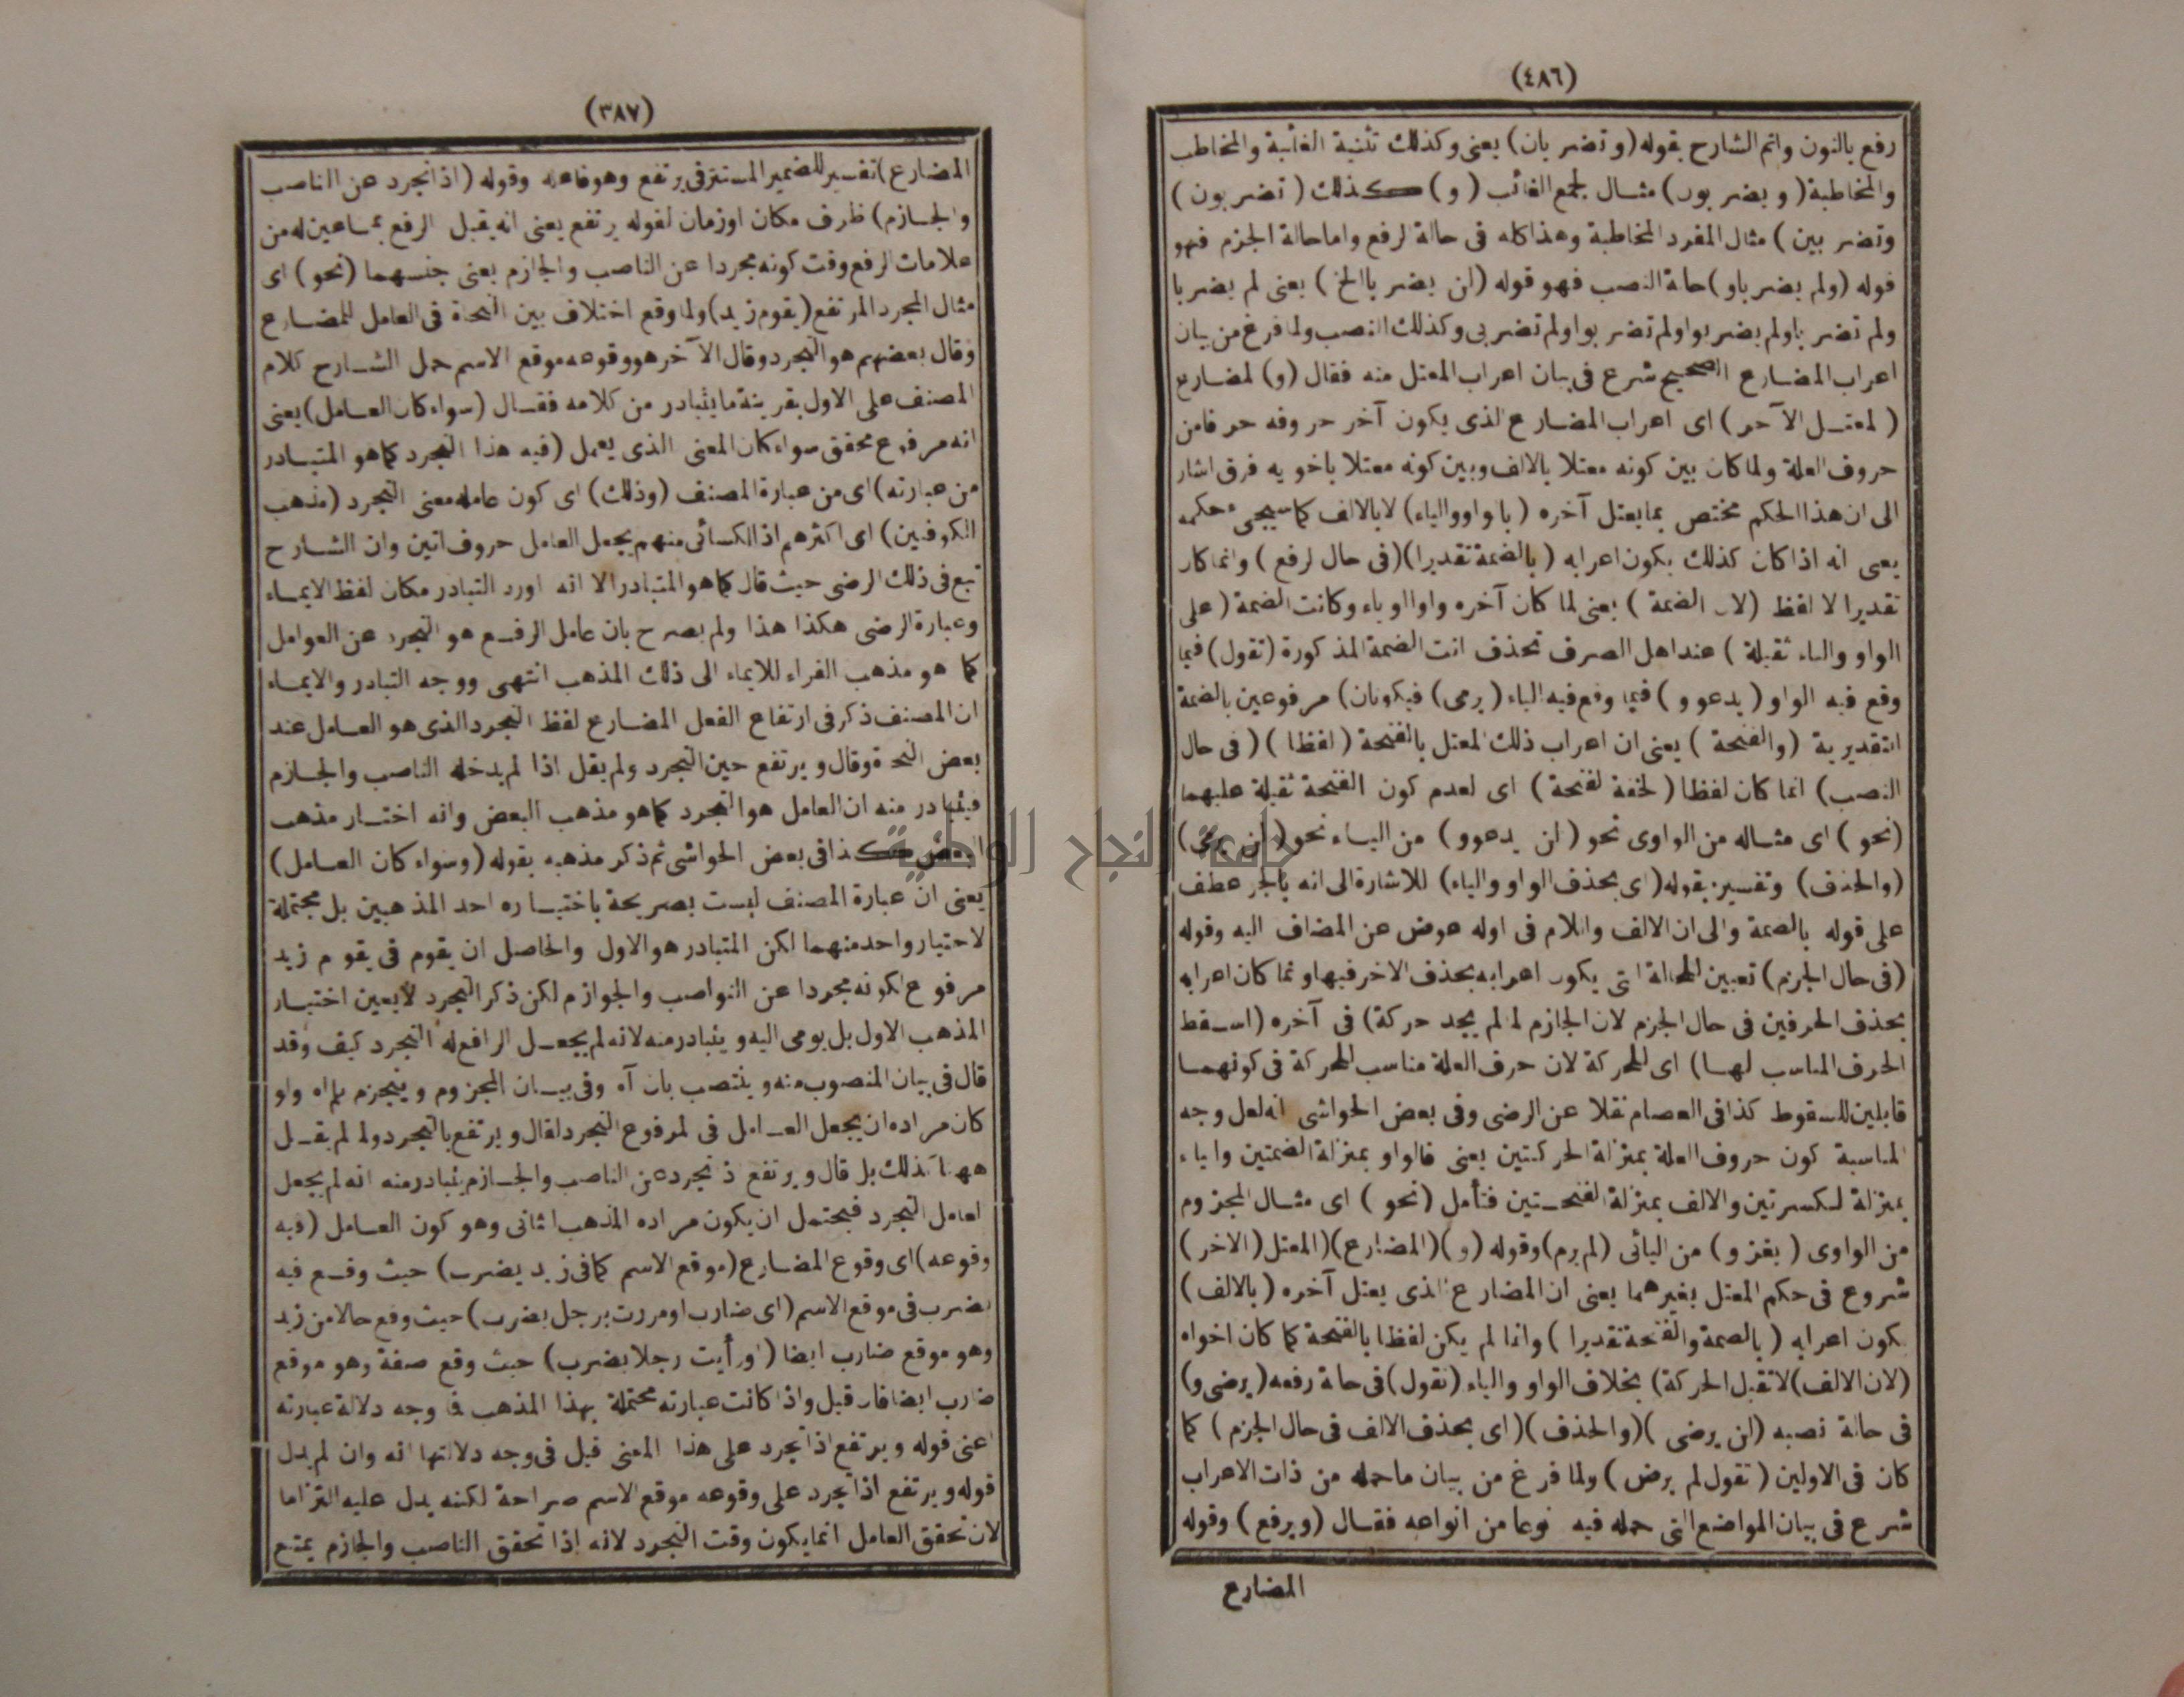 (٤٨٦)
رفع بالنون واتم الشارح بقوله (وتضربان) يعنى وكذلك تثنية الغائبة والمخاطب
والمخاطبة (ويضربون) مثال لجمع الغائب (و) كذلك (تضربون)
وتضربين) مثال المفرد المخاطبة وهذا كله فى حالة الرفع واما حالة الجزم فهو
قوله (ولم يضربا و) حالة النصب فهو قوله (لن يضربا الخ) يعنى لم يضربا
ولم تضربا ولم يضربوا ولم تضربوا ولم تضربى وكذلك النصب ولما فرغ من بيان
اعراب المضارع الصحيح شرع فى بيان اعراب المعتل منه فقال (و) لمضارع
(لمعتل الآخر) اى اعراب المضارع الذى يكون آخر حروفه حرفا من
حروف العلة ولما كان بين كونه معتلا بالالف وبين كونه معتلا باخويه فرق اشار
الى ان هذا الحكم مختص بما يعتل آخره (بالواو والياء) لا بالالف كما سيجىء حكمه
يعنى انه اذا كان كذلك يكون اعرابه (بالضمة تقديرا) (فى حال لرفع) وانما كان
تقديرا لا لفظ (لان الضمة) يعنى لما كان آخره واوا او ياء وكانت الضمة (على
الواو والياء ثقيلة) عند اهل الصرف تحذف انت الضمة المذكورة (تقول) فيما
وقع فيه الواو (يدعو و) فيما وقع فيه الياء (يرمى) فيكونان) مرفوعين بالضمة
التقديرية (والفتحة) يعنى ان اعراب ذلك المعتل بالفتحة (لفظا) (فى حال
النصب) انما كان لفظا (لخفة لفتحة) اى لعدم كون الفتحة ثقيلة عليهما
(نحو) اى مثاله من الواوى نحو (لن يدعو و) من الياء نحو (لن يرمى)
(والحذف) وتفسيره بقوله (اى بحذف الواو والياء) للاشارة الى انه بالجر عطف
على قوله بالضمة والى ان الالف واللام فى اوله عوض عن المضاف اليه وقوله
(فى حال الجزم) تعيين للحالة التى يكون اعرابه بحذف الاخر فيها وانما كان اعرابه
بحذف الحرفين فى حال الجزم لان الجازم لما لم يجد حركة) فى آخره (اسقط
الحرف المناسب لها) اى للحركة لان حرف العلة مناسب للحركة فى كونهما
قابلين للسقوط كذا فى العصام نقلا عن الرضى وفى بعض الحواشى انه لعل وجه
المناسبة كون حروف العلة بمنزلة الحركتين يعنى فالواو بمنزلة الضمتين والياء
بمنزلة لكسرتين والالف بمنزلة الفتحتين فتأمل (نحو) اى مثال المجزوم
من الواوى (يغز و) من اليائى (لم يرم) وقوله (و) (المضارع) (المعتل (الاخر)
شروع فى حكم المعتل بغيرهما يعنى ان المضارع الذى يعتل آخره (بالالف)
يكون اعرابه (بالضمة والفتحة تقديرا) وانما لم يكن لفظا بالفتحة كما كان اخواه
(لان الالف) لا تقبل الحركة) بخلاف الواو والياء (تقول) فى حالة رفعه (يرضى و)
فى حالة نصبه (لن يرضى) (والحذف) (اى بحذف الالف فى حال الجزم) كما
كان فى الاولين (تقول لم يرض) ولما فرغ من بيان ما حمله من ذات الاعراب
شرع فى بيان المواضع التى حمله فيه نوعا من انواعه فقال (ويرفع) وقوله
المضارع
(٣٨٧)
المضارع) تفسير للضمير المستتر فى يرتفع وهو فاعله وقوله (اذا تجرد عن الناصب
والجازم) ظرف مكان او زمان لقوله يرتفع يعنى انه يقبل الرفع بما عين له من
علامات الرفع وقت كونه مجردا عن الناصب والجازم يعنى جنسهما (نحو) اى
مثال المجرد المرتفع (يقوم زيد) ولما وقع اختلاف بين النحاة فى العامل للمضارع
وقال بعضهم هو التجرد وقال الآخر هو وقوعه موقع الاسم حمل الشارح كلام
المصنف على الاول بقرينة ما يتبادر من كلامه فقال (سواء كان العامل) يعنى
انه مرفوع محقق سواء كان المعنى الذى يعمل (فيه هذا التجرد كما هو المتبادر
من عبارته) اى من عبارة المصنف (وذلك) اى كون عامله معنى التجرد (مذهب
الكوفيين) اى اكثرهم اذ الكسائى منهم يجعل العامل حروف اتين وان الشارح
تبع فى ذلك الرضى حيث قال كما هو المتبادر الا انه اورد التبادر مكان لفظ الايماء
وعبارة الرضى هكذا هذا ولم يصرح بان عامل الرفع هو التجرد عن العوامل
كما هو مذهب الفراء للايماء الى ذلك المذهب انتهى ووجه التبادر والايماء
ان المصنف ذكر فى ارتفاع الفعل المضارع لفظ التجرد الذى هو العامل عند
بعض النحاة وقال ويرتفع حين التجرد ولم يقل اذا لم يدخله الناصب والجازم
فيتبادر منه ان العامل هو التجرد كما هو مذهب البعض وانه اختار مذهب
البعض كذا فى بعض الحواشى ثم ذكر مذهبه بقوله (وسواء كان العامل)
يعنى ان عبارة المصنف ليست بصريحة باختياره احد المذهبين بل محتملة
لاختيار واحد منهما لكن المتبادر هو الاول والحاصل ان يقوم فى يقوم زيد
مرفوع لكونه مجردا عن النواصب والجوازم لكن ذكر التجرد لا يعين اختيار
المذهب الاول بل يومى اليه ويتبادر منه لانه لم يجعل الرافع له التجرد كيف وقد
قال فى بيان المنصوب منه وينتصب بان آه وفى بيان المجزوم وينجزم بلم اه ولو
كان مراده ان يجعل العامل فى لمرفوع التجرد لقال ويرتفع بالتجرد ولما لم يقل
ههنا كذلك بل قال ويرتفع اذ تجرد عن الناصب والجازم يتبادر منه انه لم يجعل
لعامل التجرد فيحتمل ان يكون مراده المذهب الثانى وهو كون العامل (فيه
وقوعه) اى وقوع المضارع (موقع الاسم كما فى زيد يضرب) حيث وقع فيه
يضرب فى موقع الاسم (اى ضارب او مررت برجل يضرب) حيث وقع حالا من زيد
وهو موقع ضارب ايضا (او رأيت رجلا يضرب) حيث وقع صفة وهو موقع
ضارب ايضا فان قيل واذا كانت عبارته محتملة بهذا المذهب فما وجه دلالة عبارته
اعنى قوله ويرتفع اذا تجرد على هذا المعنى قيل فى وجه دلالتها انه وان لم يدل
قوله ويرتفع اذا تجرد على وقوعه موقع الاسم صراحة لكنه يدل عليه التزاما
لان تحقق العامل انما يكون وقت التجرد لانه اذا تحقق الناصب والجازم يمتنع
جامعة النجاح الوطنية